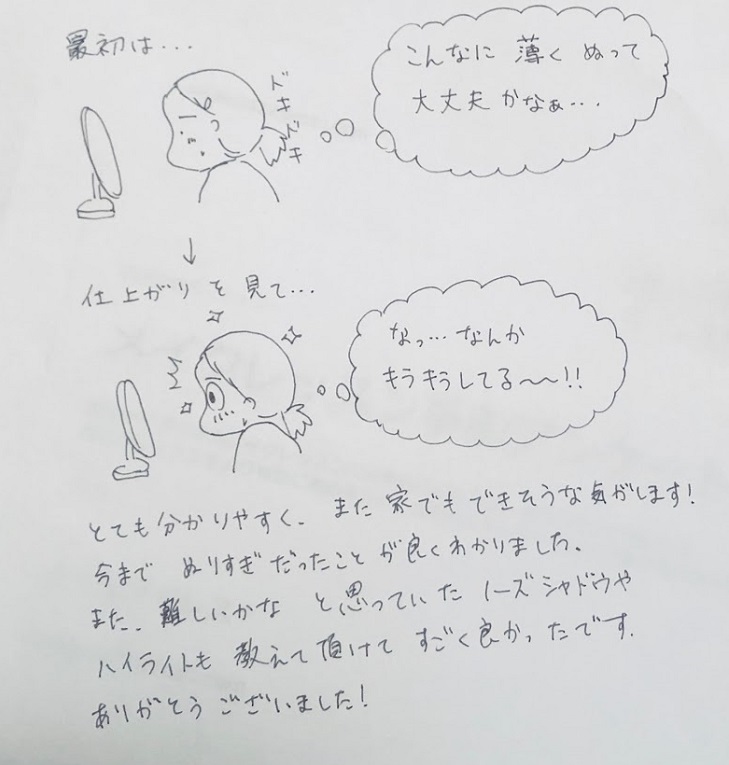 最初は...
こんなに 薄く ぬって
大丈夫 かなぁ...
ドキドキ
↓
仕上がり を 見て...
なっ...なんか
キラキラしてる〜〜!!
とても 分かりやすく、また 家でも できそうな 気がします!
今まで ぬりすぎ だったこと が 良く わかりました。
また、難しいかな と 思っていた ノーズ シャドウや
ハイライトも 教えて 頂けて すごく 良かったです。
ありがとう ございました!